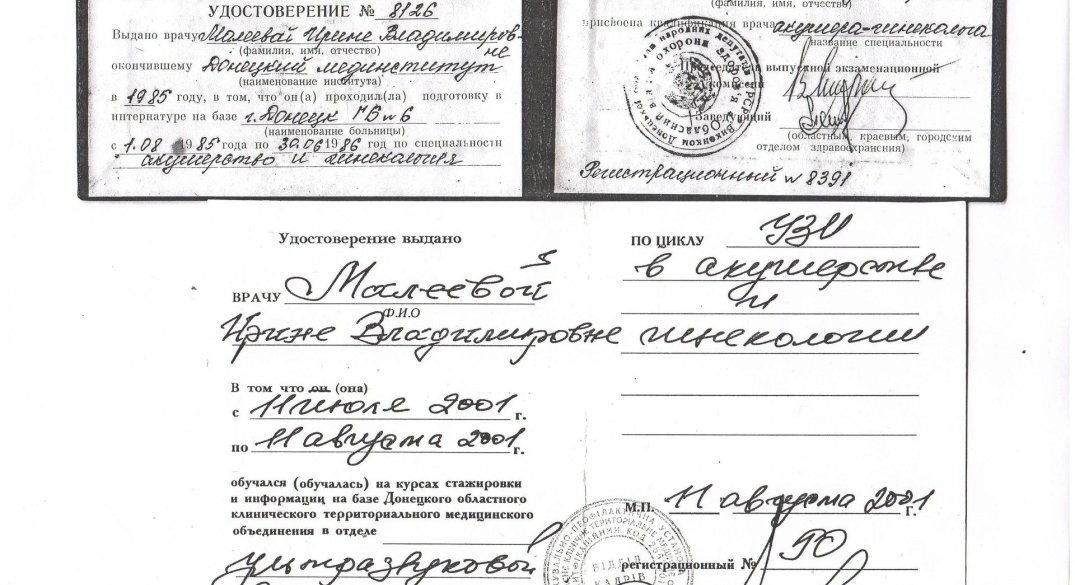 УДОСТОВЕРЕНИЕ № 8126
Выдано врачу Малеевой Ирине Владимиров-
не
(фамилия, имя, отчество)
окончившему Донецкий мединститут
(наименование института)
в 1985 году, в том, что он(а) проходил(ла) подготовку в
интернатуре на базе г. Донецк ГБ №6
(наименование больницы)
с 1.08 1985 года по 30.06 1986 год по специальности
акушерство и гинекология
(фамилия, имя, отчество)
присвоена квалификация врача акушера-гинеколога
название специальности
Председатель выпускной экзаменационной
комиссии
Заведующий
(областным, краевым, городским
отделом здравоохранения)
Регистрационный № 8391
Удостоверение выдано
ВРАЧУ Малеевой
Ф.И.О
Ирине Владимировне
В том что он (она)
с 11 июля 2001 г.
по 11 августа 2001 г.
обучался (обучалась) на курсах стажировки
и информации на базе Донецкого областного
клинического территориального медицинского
объединения в отделе
ультразвуковой
ПО ЦИКЛУ УЗИ
в акушерстве
и
гинекологии
М.П. 11 августа 2001 г.
регистрационный № 90
ВІДДІЛ
КАДРІВ